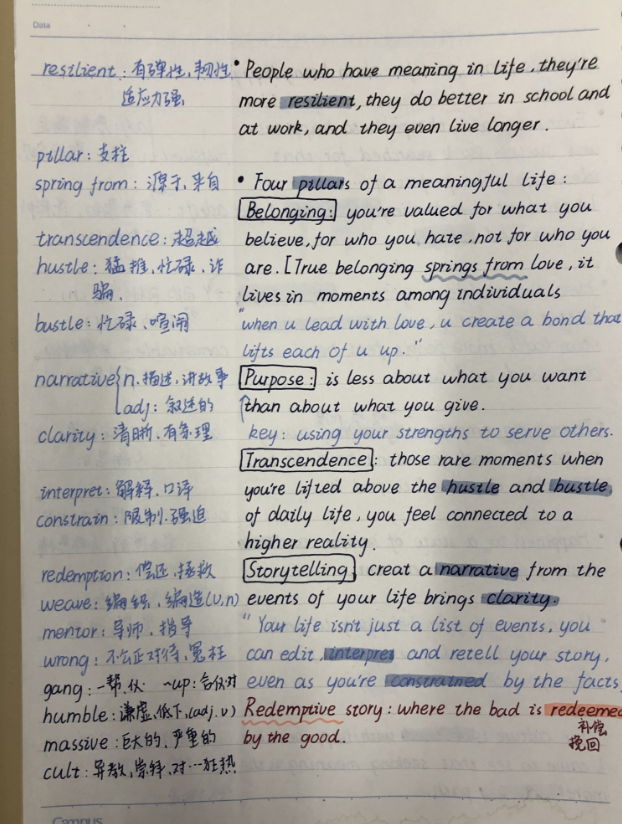 Data
restlient：有弹性、韧性
适应力强
pillar：支柱
spring from：源于、来自
transcendence：超越
hustle：猛推、忙碌、诈
骗
bustle：忙碌、喧闹
narrative n. 描述、讲故事
adj：叙述的
clarity：清晰、有条理
interpret：解释、口译
constrain：限制、强迫
redemption：偿还、拯救
weave：编织、编造(v,n)
mentor：导师、指导
wrong：不公正对待、冤枉
gang：一帮、伙 ~up：合伙对
humble：谦虚、低下、(adj. v)
massive：巨大的、严重的
cult：异教、崇拜、对…狂热
• People who have meaning in life, they're
more resilient, they do better in school and
at work, and they even live longer.
• Four pillars of a meaningful life:
Belonging: you're valued for what you
believe, for who you hate, not for who you
are. [True belonging springs from love, it
lives in moments among individuals
"when u lead with love, u create a bond that
lifts each of u up."
Purpose: is less about what you want
than about what you give.
key: using your strengths to serve others.
Transcendence: those rare moments when
you're lifted above the hustle and bustle,
of daily life, you feel connected to a
higher reality.
Storytelling, creat a narrative from the
events of your life brings clarity.
" Your life isn't just a list of events, you
can edit, interpret and retell your story,
even as you're constrained by the facts
Redemptive story: where the bad is redeemed
by the good.
补偿
挽回
Campus